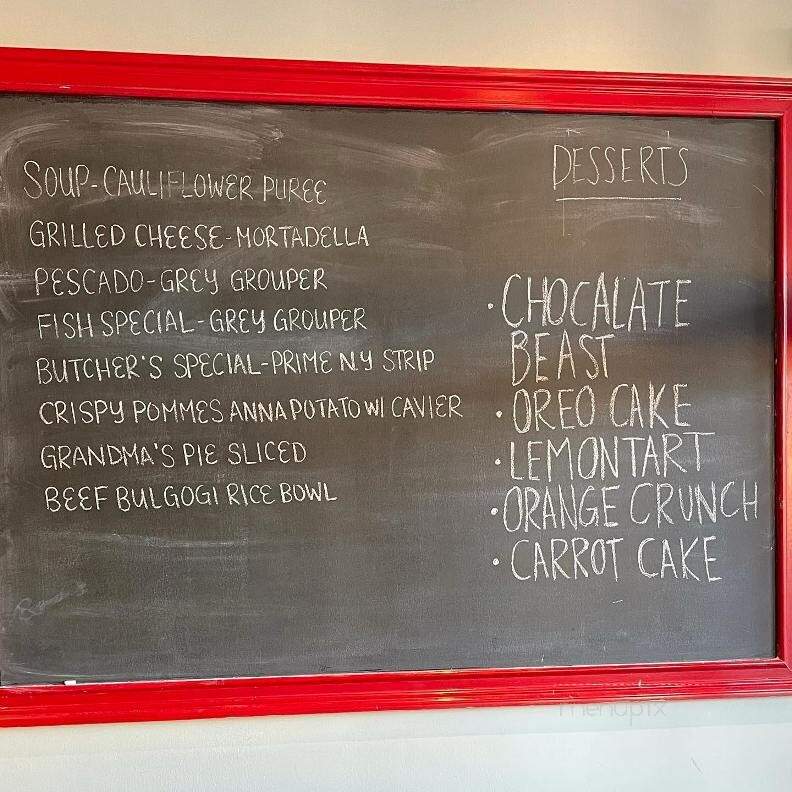 SOUP-CAULIFLOWER PUREE
GRILLED CHEESE-MORTADELLA
PESCADO-GREY GROUPER
FISH SPECIAL-GREY GROUPER
BUTCHER'S SPECIAL-PRIME N.Y STRIP
CRISPY POMMES ANNA POTATO W/ CAVIER
GRANDMA'S PIE SLICED
BEEF BULGOGI RICE BOWL
DESSERTS
·CHOCALATE
BEAST
·OREO CAKE
·LEMONTART
·ORANGE CRUNCH
·CARROT CAKE
menupix